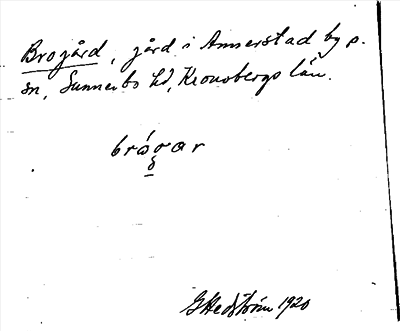 Brogård, gård i Annerstad by o.
sn, Sunnerbo hd, Kronobergs län.
brógar
GHedström 1920